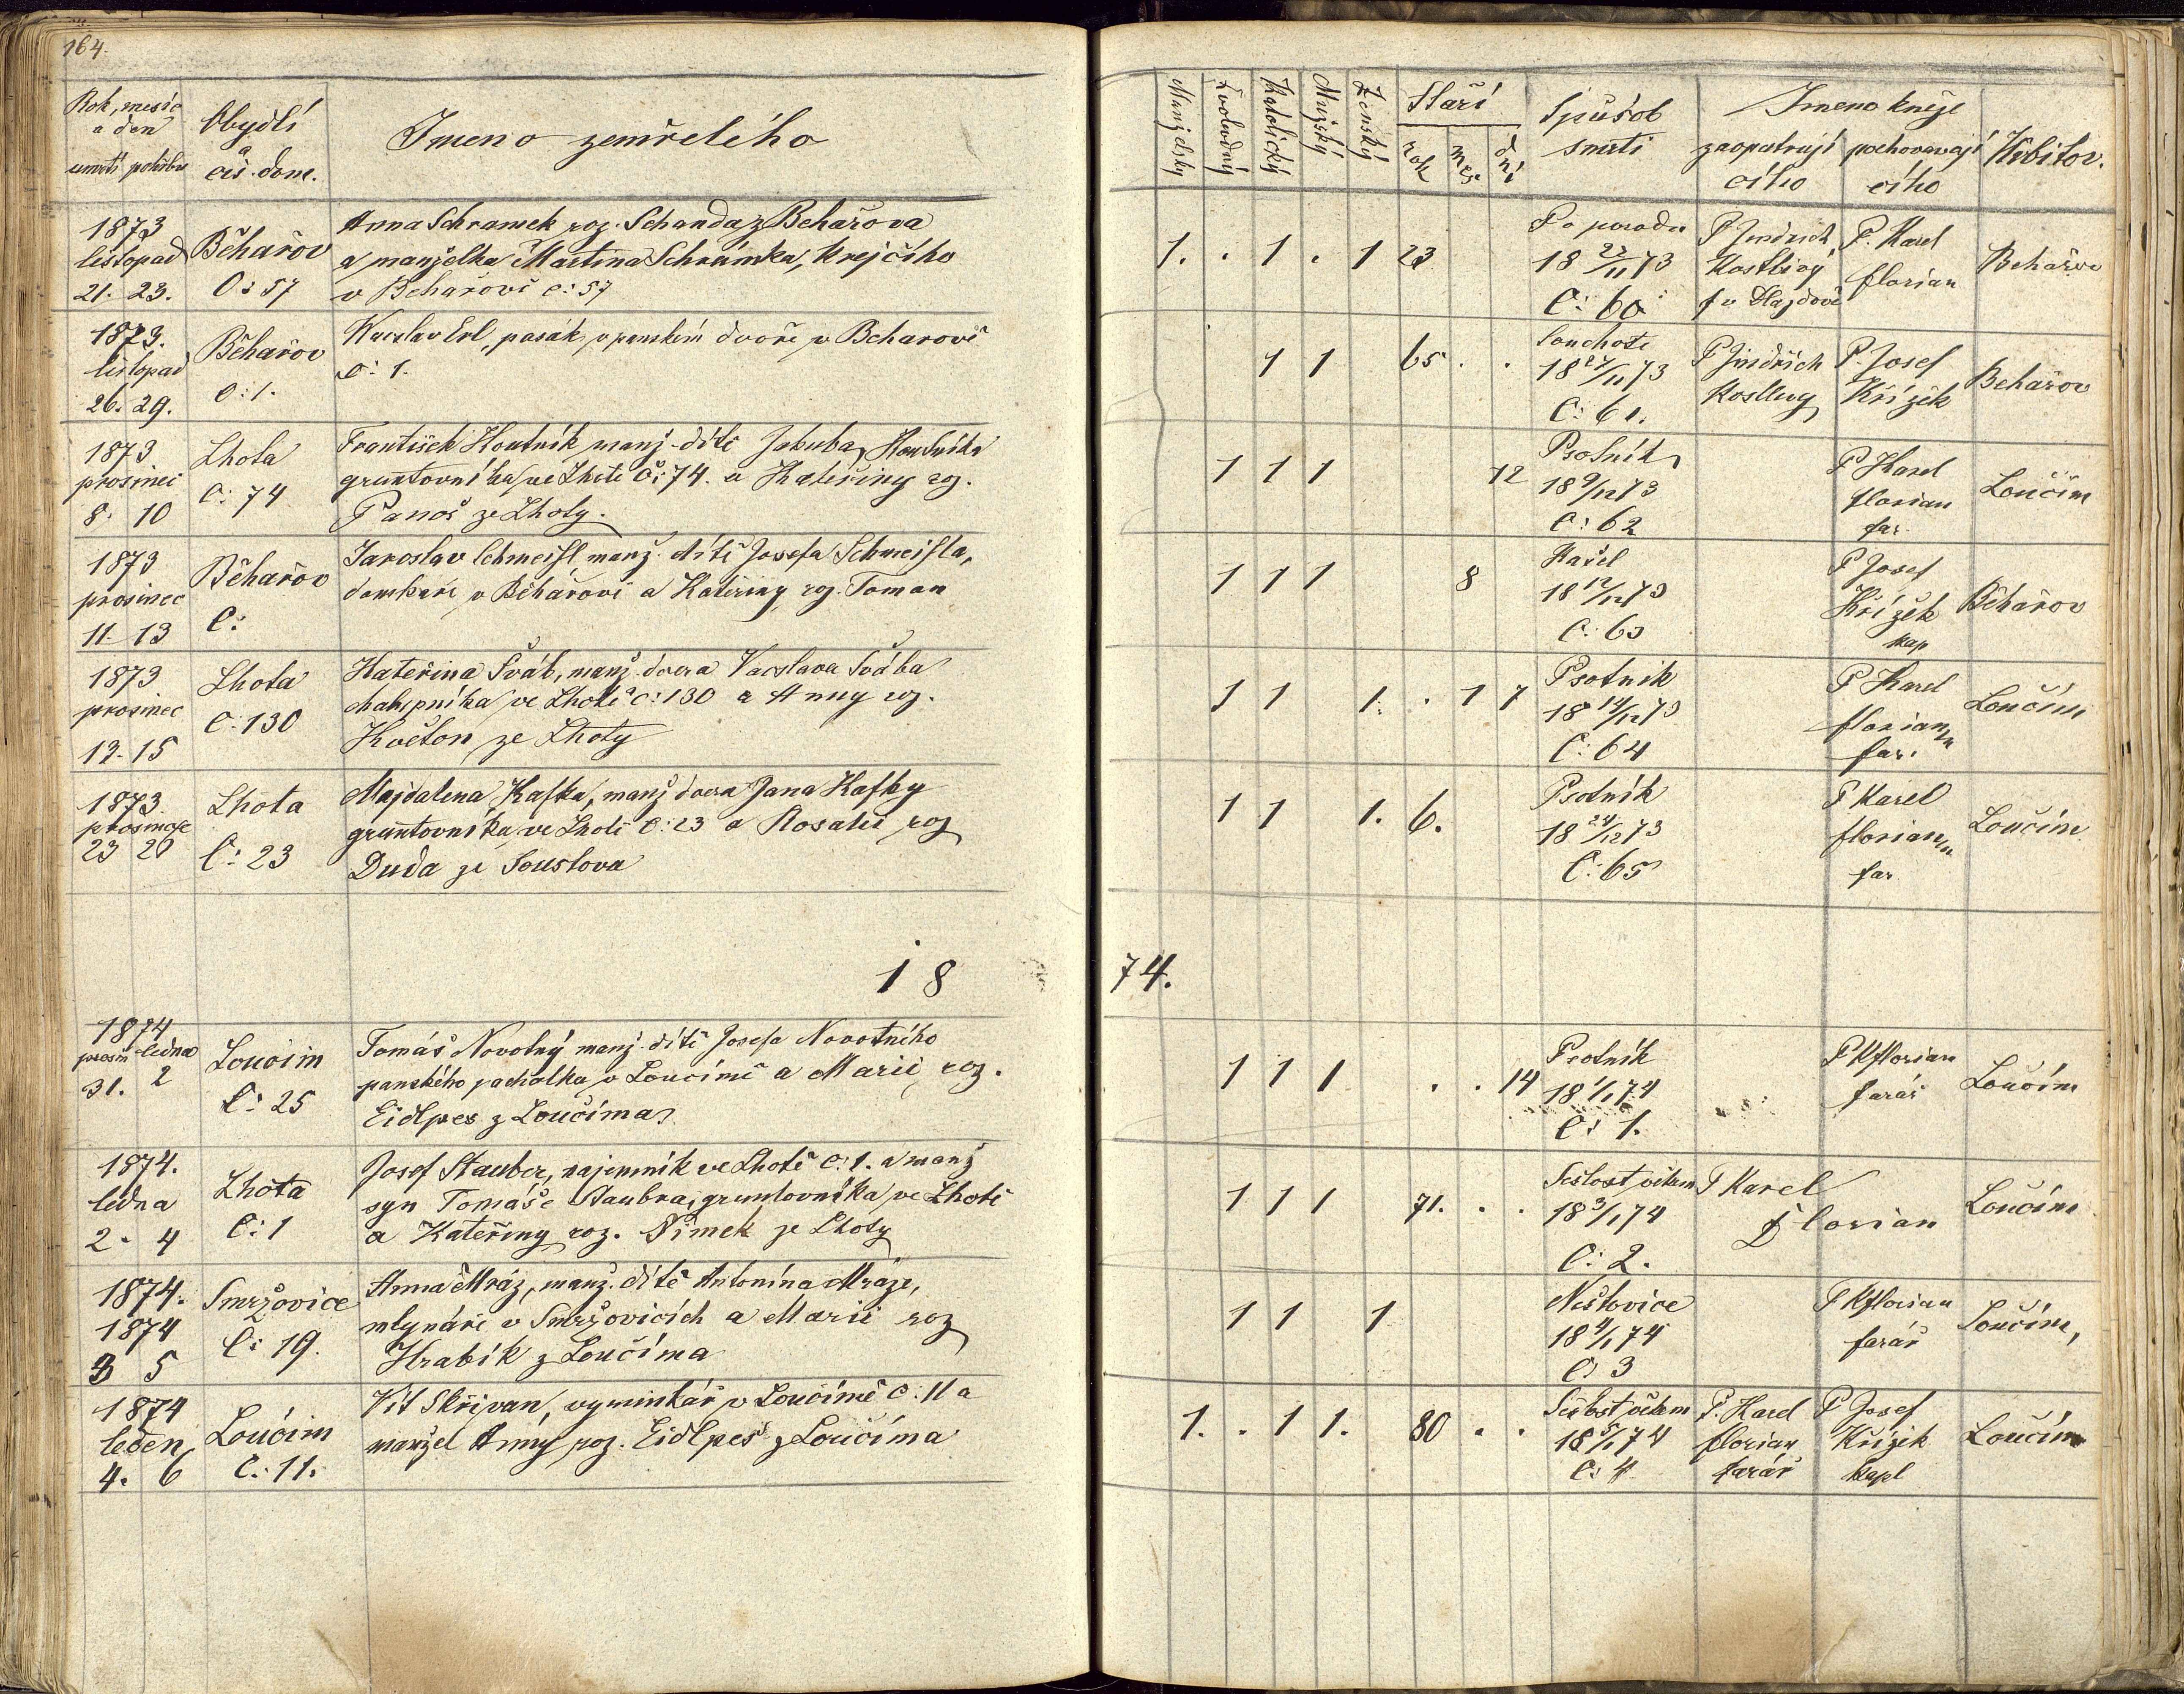 164.
Rok, mesíc
a den
umrtí pohřbu
Obydlí
a
čis. dom.
Jmeno zemřelého
Manželský
Svobodný
Katolický
Mužský
Ženský
Staří
rok
mes
dní
Spůsob
smrti
Jmeno kněze
zaopatrují
cího
pochovavají
cího
Hrbitov.
1873
listopad
21. 23.
Běhařov
C: 57
Anna Schramek roz. Schanda z Behařova
a manželka Martina Schrámka, Krejčího
v Behařově c: 57
1. . 1 . 1 23
Po porodu
18 22/11 73
C: 60
P. Jindrich
Kostlivý
f v Hajdově
P. Karel
florian
Behařov
1873.
listopad
26. 29.
Běhařov
C: 1.
Wacslav Erl, pasák v panském dvoře v Beharově
C: 1.
1 1 65 . .
Souchotě
18 27/11 73
C: 61.
P Jindřich
Kostlivy
P. Josef
Křížek
Behařov
1873
prosinec
8. 10
Lhota
C: 74
František Houtník manž. dítě Jakuba Houtníka
gruntovníka ve Lhotě C: 74. a Kateřiny roz.
Panoš ze Lhoty.
1 1 1 12
Psotník
18 9/12 73
C: 62
P Karel
florian
far.
Loučim
1873
prosinec
11. 13
Běhařov
C:
Jaroslav Schmeisl, manž. dítě Josefa Schmeisla,
domkaře v Běhařově a Kateřiny roz. Toman
1 1 1 8
Kašel
18 12/12 73
C: 63
P Josef
Křížek
kap
Běhařov
1873
prosinec
13. 15
Lhota
C: 130
Kateřina Šváb, manž. dcera Vacslava Švába
chalupníka ve Lhotě c: 130 a Anny roz.
Květon ze Lhoty
1 1 1. . 1 7
Psotník
18 14/12 73
C: 64
P Karel
florian
far.
Loučim
1873
prosince
23
Lhota
C: 23
Majdalena Kafka, manž dcera Jana Kafky
gruntovníka ve Lhotě C: 23 a Rosalie roz
Duda ze Soustova
1 1 1. 6.
Psotník
18 24/12 73
C: 65
P Karel
florian
far
Loučim
18 74.
1874
prosin ledna
31. 2
Loucim
C: 25
Tomáš Novotný manž. dítě Josefa Novotního
panského pacholka v Loucímě a Marii roz.
Eidlpes z Loučíma
1 1 1 . . 14
Psotník
18 1/1 74
C: 1.
P K florian
farář
Loučim
1874.
ledna
2. 4
Lhota
C: 1
Josef Stauber, najemník ve Lhotě C. 1. a manž
syn Tomáše Staubra, gruntovníka ve Lhotě
a Kateřiny roz. Šimek ze Lhoty
1 1 1 71. . .
Sešlost věkem
18 3/1 74
C: 2.
P Karel
Florian
Loučim
1874.
1874
3 5
Smržovice
C: 19.
Anna Mráz, manž. dítě Antonína Mráze,
mlynáře v Smržovicích a Marii roz
Hrabík z Loučíma
1 1 1
Neštovice
18 4/1 74
C: 3
P K florian
farář
Loučim,
1874
leden
4. 6
Loučim
C: 11.
Vít Skřivan, vyminkář v Loučímě C. 11 a
manžel Anny roz. Eidlpes z Loučíma
1. . 1 1. 80 . .
Sešlost věkem
18 5/1 74
C: 4
P. Karel
florian
farář
P Josef
Křížek
kapl
Loučim